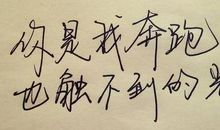 你是我奔跑
也触不到的